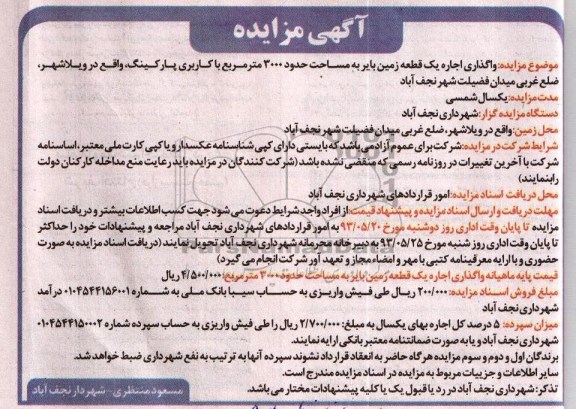 آگهی مزایده
موضوع مزایده: واگذاری اجاره یک قطعه زمین بایر به مساحت حدود ۳۰۰۰ مترمربع با کاربری پارکینگ، واقع در ویلاشهر،
ضلع غربی میدان فضیلت شهر نجف آباد
مدت مزایده: یکسال شمسی
دستگاه مزایده گزار: شهرداری نجف آباد
محل زمین: واقع در ویلاشهر، ضلع غربی میدان فضیلت شهر نجف آباد
شرایط شرکت در مزایده: شرکت برای عموم آزاد می باشد که بایستی دارای کپی شناسنامه عکسدار و یا کپی کارت ملی معتبر، اساسنامه
شرکت با آخرین تغییرات در روزنامه رسمی که منقضی نشده باشد (شرکت کنندگان در مزایده باید رعایت منع مداخله کارکنان دولت
را بنمایند)
محل دریافت اسناد مزایده: امور قراردادهای شهرداری نجف آباد
مهلت دریافت و ارسال اسناد مزایده و پیشنهاد قیمت: از افراد واجد شرایط دعوت می شود جهت کسب اطلاعات بیشتر و دریافت اسناد
مزایده تا پایان وقت اداری روز دوشنبه مورخ ۹۳/۰۵/۲۰ به امور قراردادهای شهرداری نجف آباد مراجعه و پیشنهادات خود را حداکثر
تا پایان وقت اداری روز شنبه مورخ ۹۳/۰۵/۲۵ به دبیرخانه محرمانه شهرداری نجف آباد تحویل نمایند (دریافت اسناد مزایده به صورت
حضوری و با ارایه معرفینامه کتبی با مهر و امضاء مجاز و تعهد آور شرکت انجام می گیرد)
قیمت پایه ماهیانه واگذاری اجاره یک قطعه زمین بایر به مساحت حدود ۳۰۰۰ مترمربع: ۴/۵۰۰/۰۰۰ ریال
مبلغ فروش اسناد مزایده: ۲۰۰/۰۰۰ ریال طی فیش واریزی به حساب سیبا بانک ملی به شماره ۰۱۰۴۵۴۴۱۵۶۰۰۱ درآمد
شهرداری نجف آباد
میزان سپرده: ۵ درصد کل اجاره بهای یکسال به مبلغ: ۲/۷۰۰/۰۰۰ ریال را طی فیش واریزی به حساب سپرده شماره ۰۱۰۴۵۴۴۱۵۰۰۰۲
شهرداری نجف آباد و یا به صورت ضمانتنامه معتبر بانکی ارایه نمایند.
برندگان اول و دوم و سوم مزایده هرگاه حاضر به انعقاد قرارداد نشوند سپرده آنها به ترتیب به نفع شهرداری ضبط خواهد شد.
سایر اطلاعات و جزییات مربوط به مزایده در اسناد مزایده مندرج است.
تذکر: شهرداری نجف آباد در رد یا قبول یک یا کلیه پیشنهادات مختار می باشد.
مسعود منتظری - شهردار نجف آباد